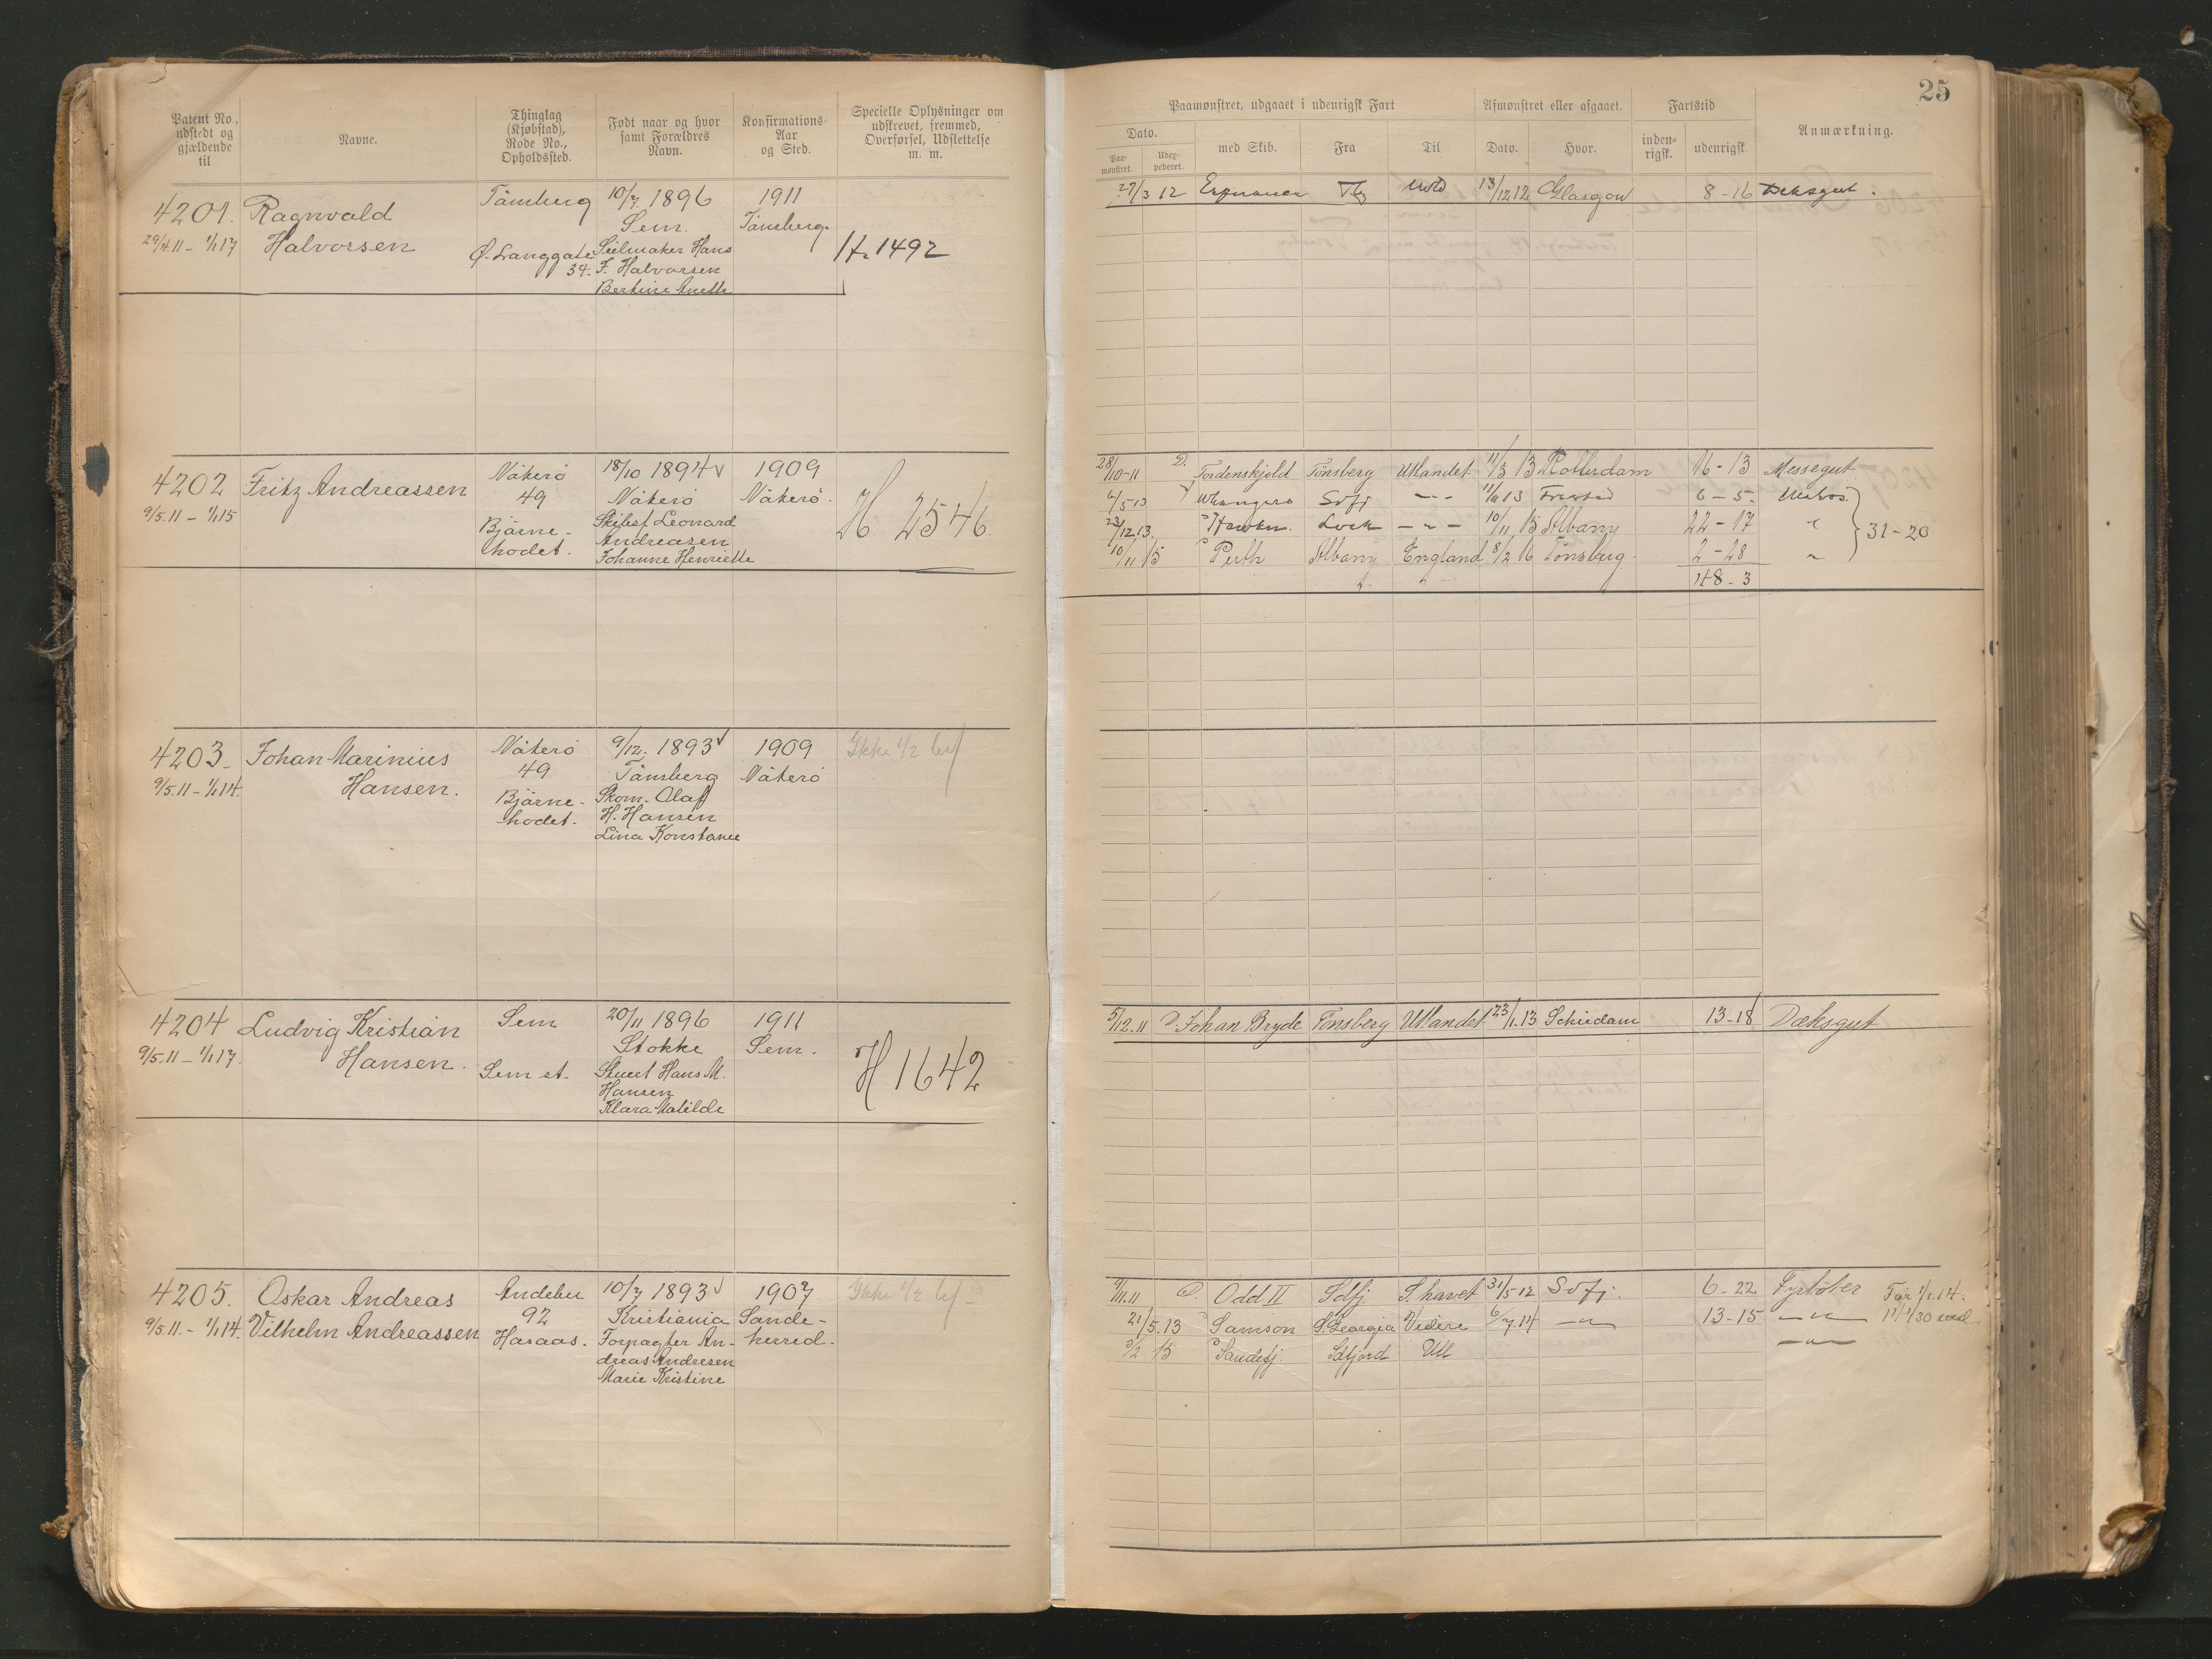 25
Patent No., udstedt og gjældende til
Navne.
Thinglag (Kjøbstad), Rode No., Opholdssted.
Født naar og hvor samt Forældres Navn.
Konfirmations-Aar og Sted.
Specielle Oplysninger om udskrevet, fremmed, Overførsel, Udslettelse m. m.
Paamønstret, udgaaet i udenrigsk Fart
Afmønstret eller afgaaet.
Fartstid
Anmærkning.
Dato.
Paa-mønstret.
Udex-pederet.
med Skib.
Fra
Til
Dato.
Hvor.
inden-rigsk.
udenrigsk
4201. Ragnvald Tønsberg 10/7. 1896 1911
29/4 11 – 1/1 17 Halvorsen Sem. Tønsberg.
Ø. Langgate Seilmaker Hans H 1492
34. F. Halvorsen
Bertine Anette
27/3 12 Tbg Utld 13/12 12 Glasgow 8-16 Deksgut.
4202 Fritz Andreassen Nøterø 18/10 1894 v 1909
9/5. 11 – 1/1 15 49 Nøterø Nøterø. H 2546.
Bjørne- Skibsf. Leonard
hodet. Andreasen
Johanne Henriette
28/10-11 D. Tordenskjold Tønsberg Utlandet 11/3 13 Rotterdam 16-13 Messegut
6/5 13 Sdfj – " – 11/11 13 6-5. Matros.
23/12 13. – " – 10/11 15 Albany 22-17 " 31-20
10/11 15 D Perth Albany England 8/2 16 Tønsberg. 2-28 "
48-3
4203 Johan Marinius Nøterø 9/12. 1893 v 1909 Ikke 1/2 bef
9/5. 11 – 1/1 14. Hansen. 49 Tønsberg Nøterø
Bjørne- Skom. Olaf
hodet. H. Hansen
Lina Konstance
4204 Ludvig Kristian Sem 20/11 1896 1911
9/5. 11 – 1/1 17. Hansen. Stokke Sem. H 1642
Sem st. Stuert Hans M.
Hansen
Klara Matilde
5/12. 11 D Johan Bryde Tønsberg Utlandet 23/1. 13 Schiedam 13-18 Dæksgut
4205. Oskar Andreas Andebu 10/7 1893 v 1907 Ikke 1/2 bef
9/5. 11. – 1/1 14. Vilhelm Andreassen 92 Kristiania Sande-
Hasaas. Forpagter An- herred.
dreas Andresen
Marie Kristine
9/11. 11 D. Odd II Sdfj. S. havet 31/5 12 Sdfj. 6-22 Fyrbøter Før 1/1. 14.
21/5. 13 D Samson S. Georgia Videre 6/7. 14 – " – 13-15 – " –
D Sandefj. Sdfjord Utl – " –